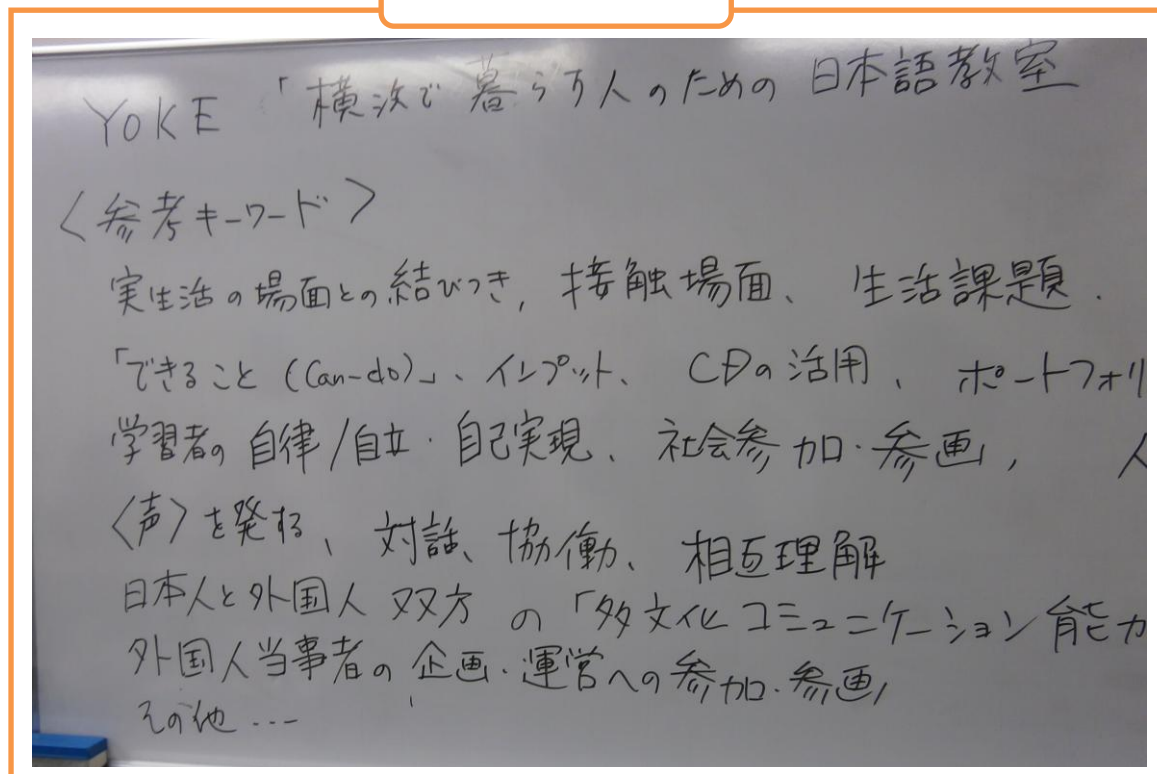 YOKE 「横浜で暮らす人のための日本語教室
〈参考キーワード〉
実生活の場面との結びつき, 接触場面、 生活課題.
「できること (Can-do)」、インプット、 CDの活用、 ポートフォリ
学習者の自律/自立・自己実現、社会参加・参画, 人
〈声〉を発する、対話、協働、相互理解
日本人と外国人 双方 の「多文化コミュニケーション能力
外国人当事者の企画・運営への参加・参画,
その他 ...